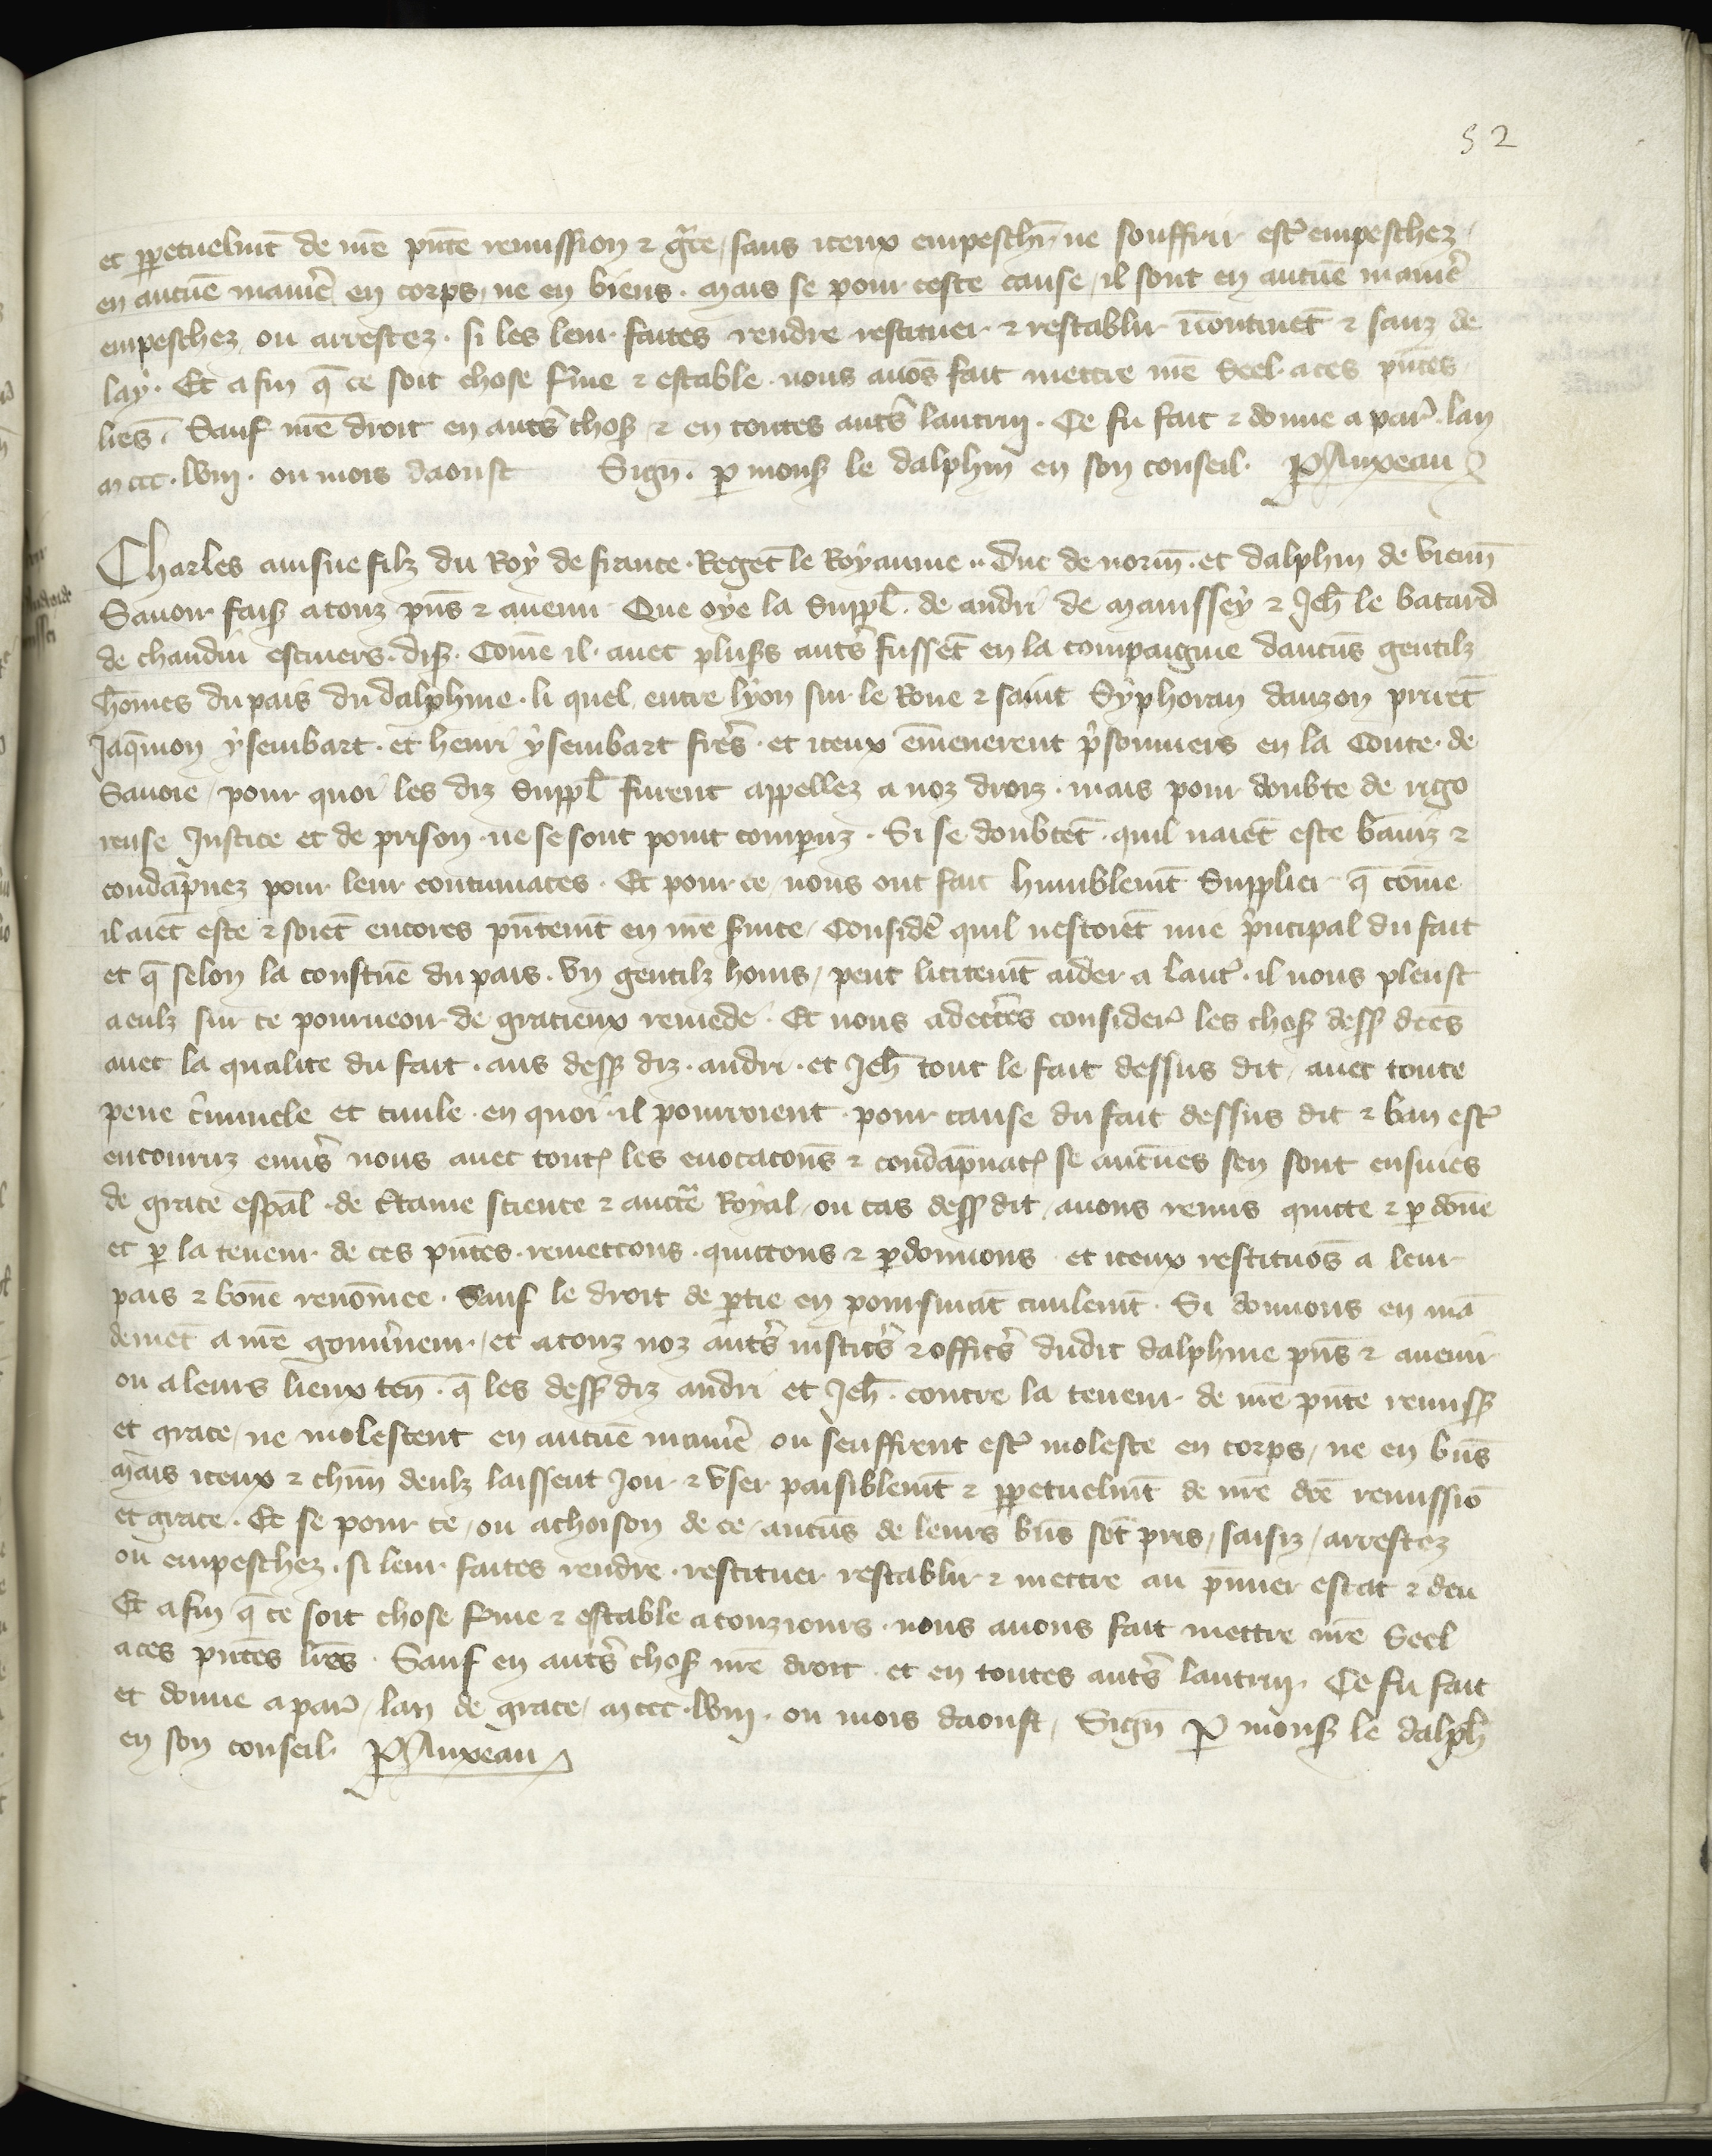 52
et ꝑpetuelmt̄ de nr̄e pñte remission ⁊ gr̄ce, sans iceux empeschr̄ ne souffrir estr̾ empeschez
en aucūe manier̾ en corps, ne en biens. mais se pour ceste cause, il sont en aucūe manier̾
empeschez ou arrestez. si les leur faites rendre restituer ⁊ restablir ītontinēt ⁊ sanz de
lay. Et afin q̄ ce soit chose ferme ⁊ estable. nous auōs fait mettre nr̄e Seel. aces pñtes
lr̄es. Sauf nr̄e droit en autr̾s choſ ⁊ en toutes autr̾s lautrui. Ce fu fait ⁊ donne a par̾. lan
mccc. lviij. ou mois daoust Sign̄. ꝑ monſ le dalphin en son conseil. P Auxeau
Charles ainsne filz du Roy de france. Regēt le Royaume.. Duc de norm̄. et dalphin de vienn̄
Sauoir faiſ atouz pñs ⁊ auenir Que oye la Suppl̄. de andri de manissey ⁊ Jeh̄ le batard
de chandiu escuiers. diſ. Comē il. auec pluſs autr̾s fussēt en la compaignie daucūs gentilz
hōmes du pais du dalphine. li quel entre lyon sur le Rone ⁊ saint Syphoran dauzon prirēt
Jaq̄mon ysembart. et henri ysembart frer̾s. et iceux ēmenerent p̾sonniers en la Conte. de
Sauoie, pour quoi les diz Suppl̄ furent appellez a noz droiz. mais pour doubte de rigo
reuse Justice et de prison. ne se sont point comparuz. Si se doubtēt. quil naiēt este baniz ⁊
condāpnez pour leur contumaces. Et pour ce, nous ont fait humblemt̄ Supplier q̄ cōme
il aiēt este ⁊ soiēt encores pñtemt̄ en nr̄e ſuice, Consider̾ quil nestoiēt mie p̾ncipal du fait
et q̄ selon la coustūe du pais. vn gentilz homs, peut licitemt̄ aider a lautr̾. il nous pleust
aeulz sur ce pourueoir de gracieux remede. Et nous adecer̄tes considerer̾ les choſ deſſ dc̄es
auec la qualite du fait. aus deſſ diz. andri. et Jeh̄ tout le fait dessus dit, auec toute
pene c̾minele et ciuile. en quoi. il pourroient. pour cause du fait dessus dit ⁊ ban estr̾
encouruz enuer̾s nous auec toutꝭ les euocacōns ⁊ condāpnatꝭ se aucūes sen sont ensuies
de grace esp̄al. de c̾taine science ⁊ auctr̄e Royal, ou cas deſſ dit, auons remis quicte ⁊ ꝑdōne
et ꝑ la teneur de ces pñtes. remettons. quittons ⁊ ꝑdonnons. et iceux restituōs a leur
pais ⁊ bōne renōmee. Sauf le droit de ꝑtie en poursuiāt ciuilemt̄. Si donnons en mā
demēt a nr̄e gouu̾neur, et atouz noz autr̾s iusticr̾s ⁊ officr̾s dudit dalphine pñs ⁊ auenir
ou aleurs lieux ten̄. q̄ les deſſ diz andri et Jeh̄. contre la teneur de nr̄e pñte remiſſ
et grace, ne molestent en aucūe manier̾ ou seuffrent estr̾ moleste en corps, ne en biēs
Mais iceux ⁊ chūn deulz laissent Joir ⁊ vser paisiblemt̄ ⁊ ꝑpetuelmt̄ de nr̄e dc̄e remissiō
et grace. Et se pour ce, ou achoison de ce, aucūs de leurs biēs sōt pris, saisiz, arrestez
ou empeschez. si leur faites rendre. restituer restablir ⁊ mettre au p̄mier estat ⁊ deu
Et afin q̄ ce soit chose ferme ⁊ estable atouziours. nous auons fait mettre nr̄e Seel
aces pñtes lr̄es. Sauf en autr̾s choſ nr̄e droit. et en toutes autr̾s lautrui. Ce fu fait
et donne apar̾, lan de grace, mccc. lviij. ou mois daoust, Sign̄ ꝑ monſ le dalph̄
en son conseil. P Auxeau